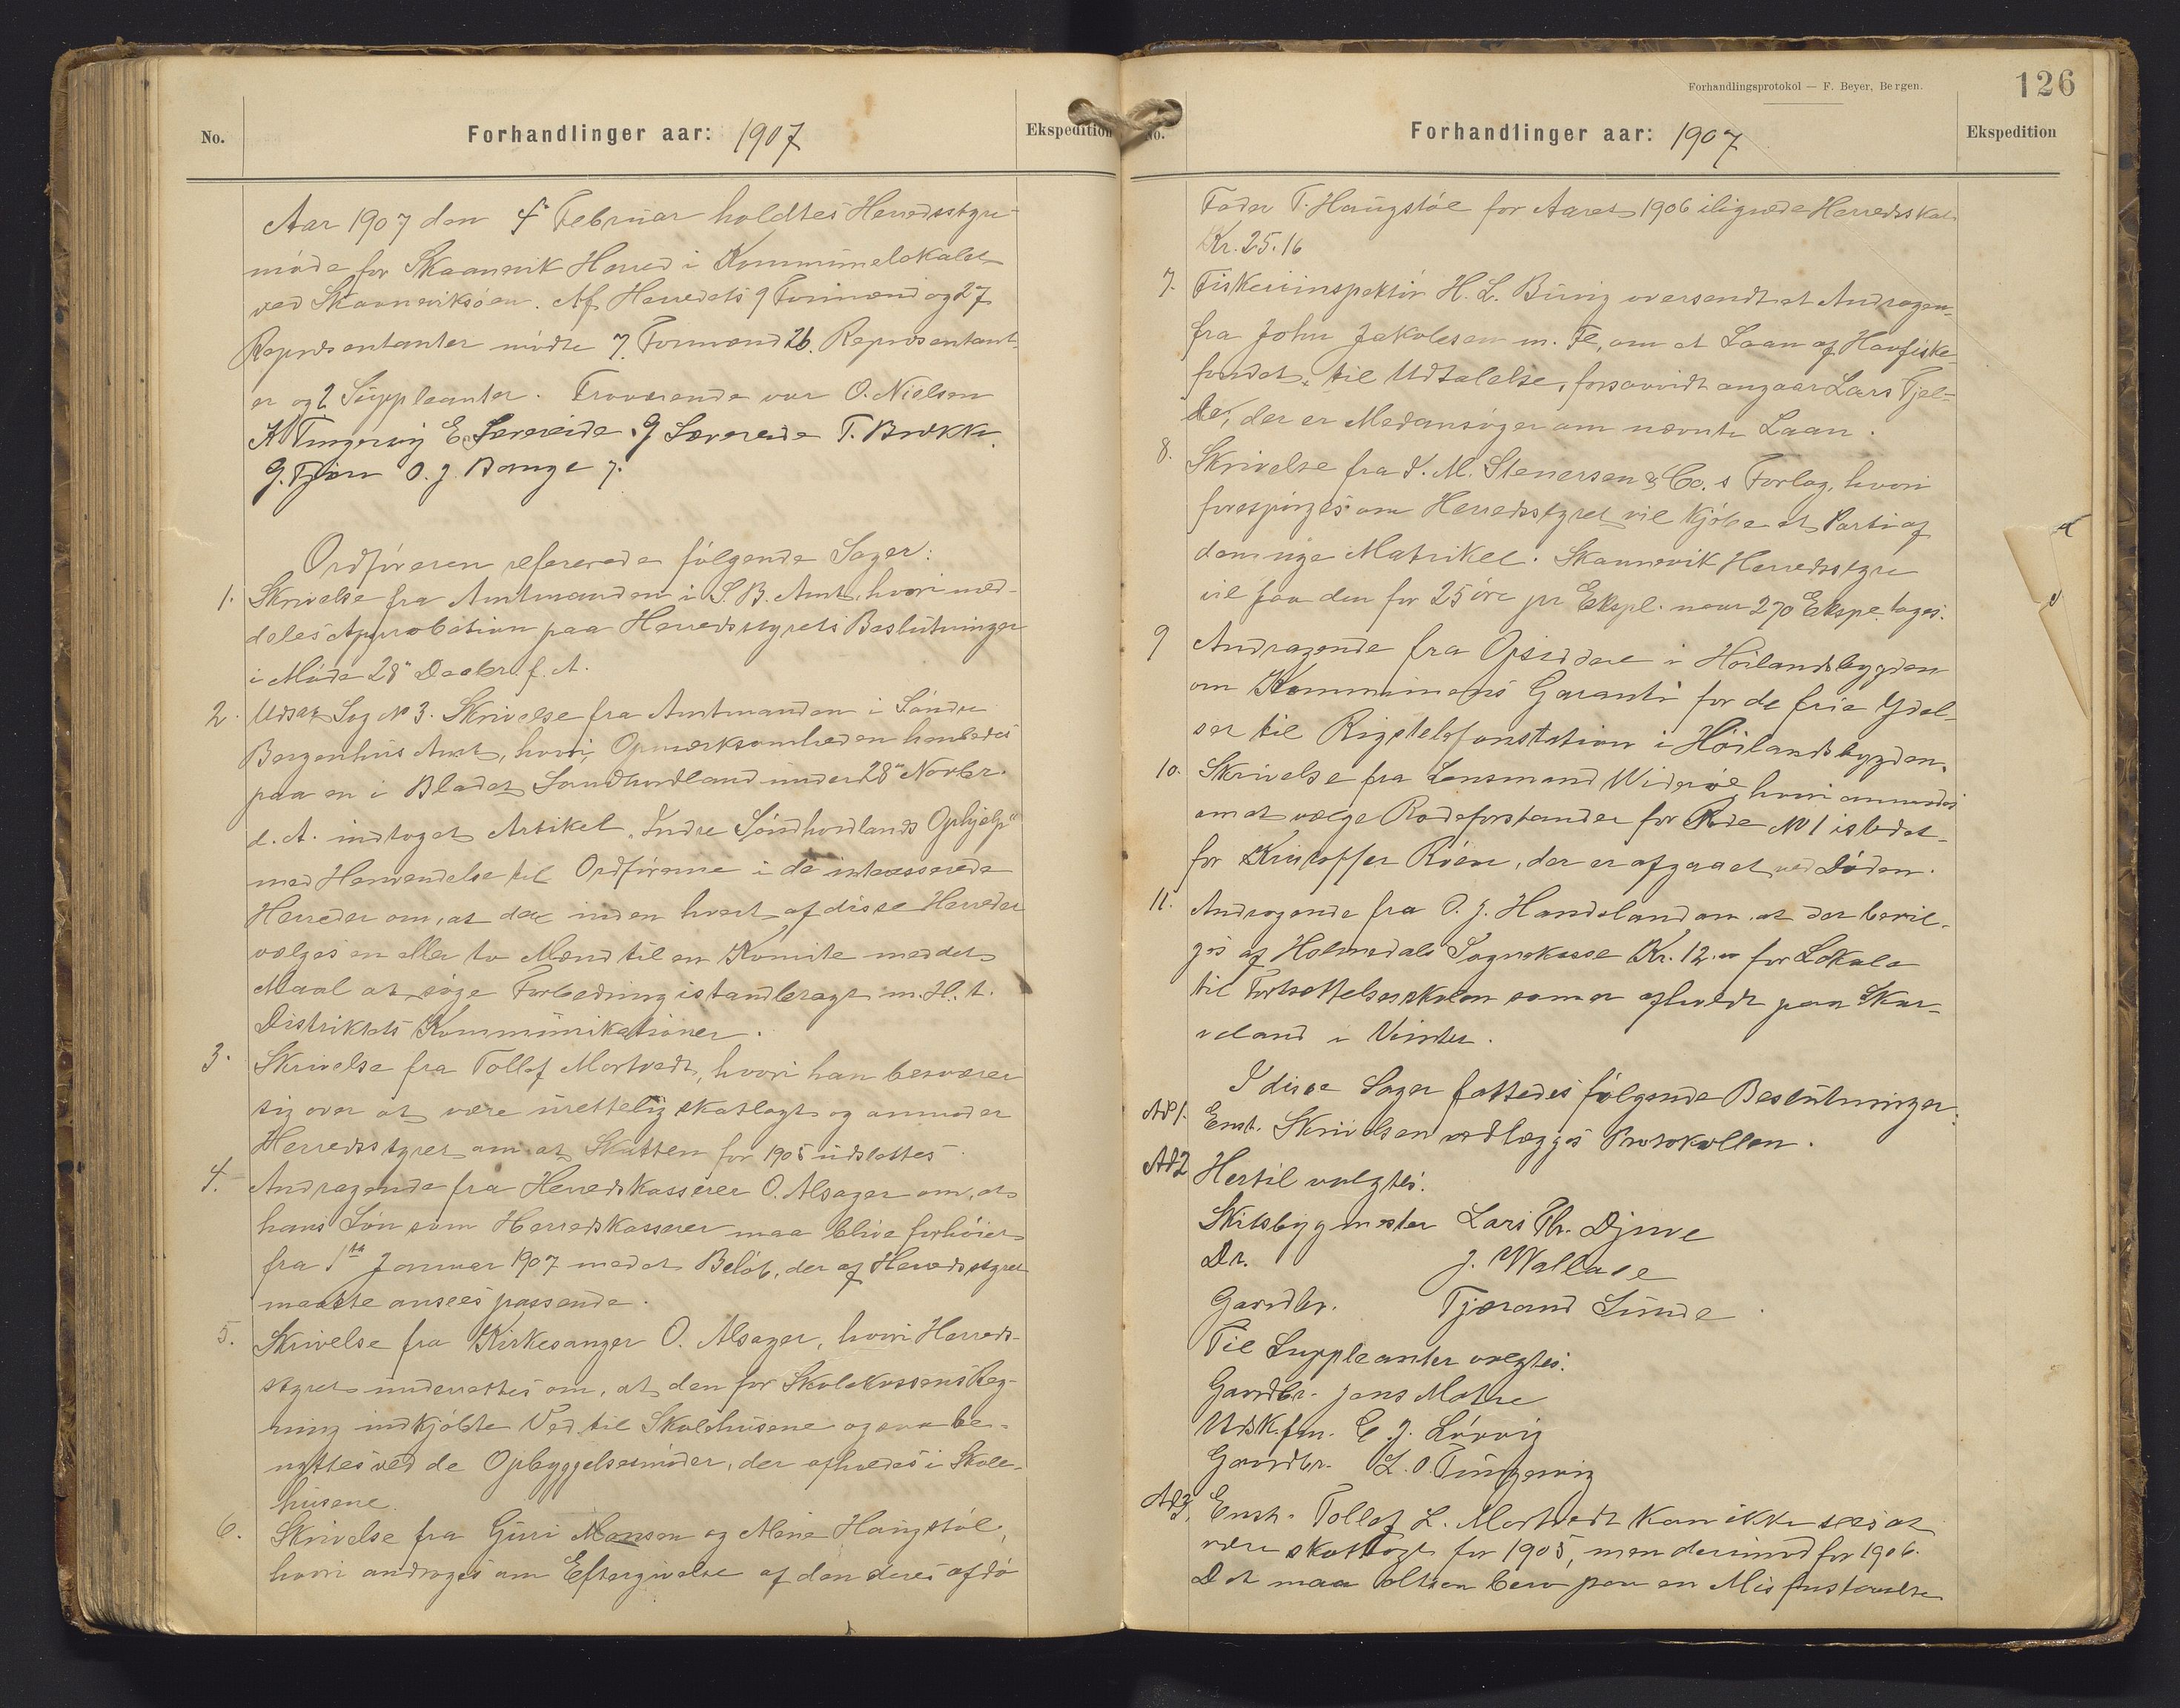 No.
Forhandlinger aar: 1907
Ekspedition
Aar 1907 den 4de Februar holdtes Herredsstyre-
møde for Skaanevik Herred i Kommunelokalet
ved Skaaneviksøen. Af Herredets 9 Formænd og 27
Repræsentanter mødte 7 Formænd 26 Repræsentant-
er og 2 Suppleanter. Fraværende var O. Nielsen
K Tungesvig E. Sævereide G Sævereide T. Brække
G. Fjøn O. J. Bauge
Ordføreren refererede følgende Sager:
1. Skrivelse fra Amtmanden i S. B. Amt, hvori med-
deles Approbation paa Herredsstyrets Beslutninger
i Møde 28de Decbr. f. A.
2. Udsat Sag No 3. Skrivelse fra Amtmanden i Søndre
Bergenhus Amt, hvori Opmærksomheden henledes
paa en i Bladet Søndhordland under 28de Novbr.
d. A. indtaget Artikel „Indre Søndhordlands Ophjelp"
med Henvendelse til Ordførerne i de interesserede
Herreder om, at der inden hvert af disse Herreder
vælges en eller to Mænd til en Komite med det
Maal at søge Forbedring istandbragt m. H. t.
Distriktets Kommunikationer.
3. Skrivelse fra Tollef Mortvedt, hvori han besværer
sig over at være urettelig skatlagt og anmoder
Herredsstyret om at Skatten for 1905 udslettes.
4. Andragende fra Herredskasserer O. Alsager om, at
hans Løn som Herredskasserer maa blive forhøiet
fra 1ste Januar 1907 med et Beløb, der af Herredsstyret
maatte ansees passende.
5. Skrivelse fra Kirkesanger O. Alsager, hvori Herreds-
styret underrettes om, at den for Skolekassens Reg-
ning indkjøbte Ved til Skolehusene ogsaa be-
nyttes ved de Opbyggelsesmøder, der afholdes i Skole-
husene.
6. Skrivelse fra Guri Monsen og Mina Haugstøl,
hvori andrages om Eftergivelse af den deres afdø
Forhandlingsprotokol — F. Beyer, Bergen.
126
No.
Forhandlinger aar: 1907
Ekspedition
Fader T. Haugstøl for Aaret 1906 ilignede Herredsskat
Kr. 25.16
7. Fiskeriinspektør H. L. Buvig oversendt et Andragen-
fra John Jakobsen m. Fl, om et Laan af Havfiske-
fondet, til Udtalelse, forsaavidt angaar Lars Fjel-
de, der er Medansøger om nævnte Laan.
8. Skrivelse fra J. M. Stenersen & Co.s Forlag, hvori
forespørges om Herredsstyret vil kjøbe et Parti af
den nye Matrikel. Skaanevik Herredsstyre
vil faa den for 25 øre pr Ekspl. naar 270 Ekspl. tages.
9 Andragende fra Opsiddere i Høilandsbygden
om Kommunens Garanti for de frie Ydel-
ser til Rigstelefonstation i Høilandsbygden.
10. Skrivelse fra Lensmand Widerøe, hvori anmodes
om at vælge Rodeforstander for Rode No 1 istedet-
for Kristoffer Røen, der er afgaaet ved Døden.
11. Andragende fra O. J. Handeland om at der bevil-
ges af Holmedals Sognekasse Kr. 12.00 for Lokale
til Fortsættelsesskolen som er afholdt paa Skar-
veland i Vinter.
I disse Sager fattedes følgende Beslutninger:
Ad 1. Enst. Skrivelsen vedlægges Protokollen.
Ad 2 Hertil valgtes:
Skibsbygmester Lars Th. Djuve
Dr. J. Wallace
Gaardbr. Tjærand Sunde
Til Suppleanter valgtes:
Gaardbr. Jens Matre
Udsk.fm. E. J. Løvvig
Gaardbr. L. O. Tungesvig
Ad 3. Enst. Tollef L. Mortvedt kan ikke sees at
være skatlagt for 1905, men derimod for 1906.
Det maa altsaa bero paa en Misforstaaelse